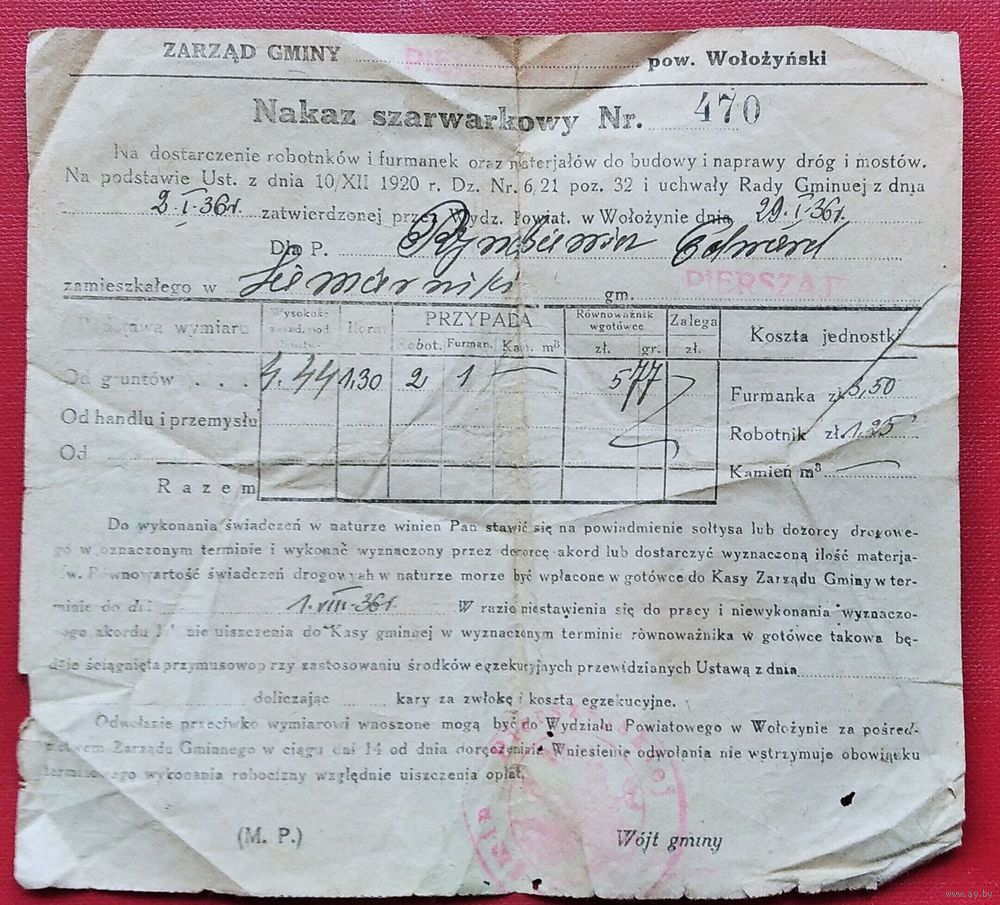 ZARZĄD GMINY pow. Wołożyński
Nakaz szarwarkowy Nr. 470
Na dostarczenie robotnków i furmanek oraz materjałów do budowy i naprawy dróg i mostów.
Na podstawie Ust. z dnia 10/XII 1920 r. Dz. Nr. 6,21 poz. 32 i uchwały Rady Gminuej z dnia
2.I.36r. zatwierdzonej przez Wydz. Powiat. w Wołożynie dnia 29.I.36r.
Dla P. Edward
zamieszkałego w gm. PIERSZAJE
Podstawa wymiaru Wysokość Norma PRZYPADA Równoważnik wgotówce Zalega Koszta jednostki
Robot. Furman. Kam. m³ zł. gr. zł.
Od gruntów . . . 4.44 1.30 2 1 — 5 77 Furmanka zł 3,50
Od handlu i przemysłu Robotnik zł. 1.25
Od Kamień m³ —
Razem
Do wykonania świadczeń w naturze winien Pan stawić się na powiadmienie sołtysa lub dozorcy drogowe-
go w oznaczonym terminie i wykonać wyznaczony przez dozorcę akord lub dostarczyć wyznaczoną ilość materja-
łów. Równowartość świadczeń drogowych w naturze morze być wpłacone w gotówce do Kasy Zarządu Gminy w ter-
minie do dn. 1.VIII.36r. W razie niestawienia się do pracy i niewykonania wyznaczo-
nego akordu nie uiszczenia do Kasy gminnej w wyznaczonym terminie równoważnika w gotówce takowa bę-
dzie ściągnięta przymusowop rzy zastosowaniu środków egzekucyjnych przewidzianych Ustawą z dnia
doliczając kary za zwłokę i koszta egzekucyjne.
Odwołanie przeciwko wymiarowi wnoszone mogą być do Wydziału Powiatowego w Wołożynie za pośred-
nictwem Zarządu Gminnego w ciągu dni 14 od dnia doręczenia. Wniesienie odwołania nie wstrzymuje obowiązku
terminowego wykonania robocizny względnie uiszczenia opłat.
(M. P.) Wójt gminy
www.ay.by